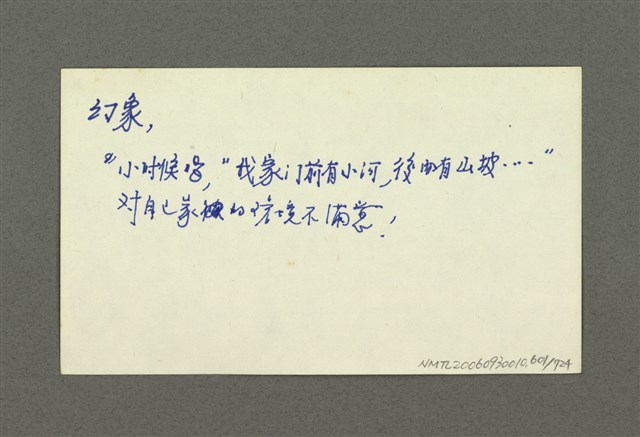 幻象,
小时候唱,"我家门前有小河,後面有山坡····"
对自己家的环境不满意!
NMTL20060930010.601/724